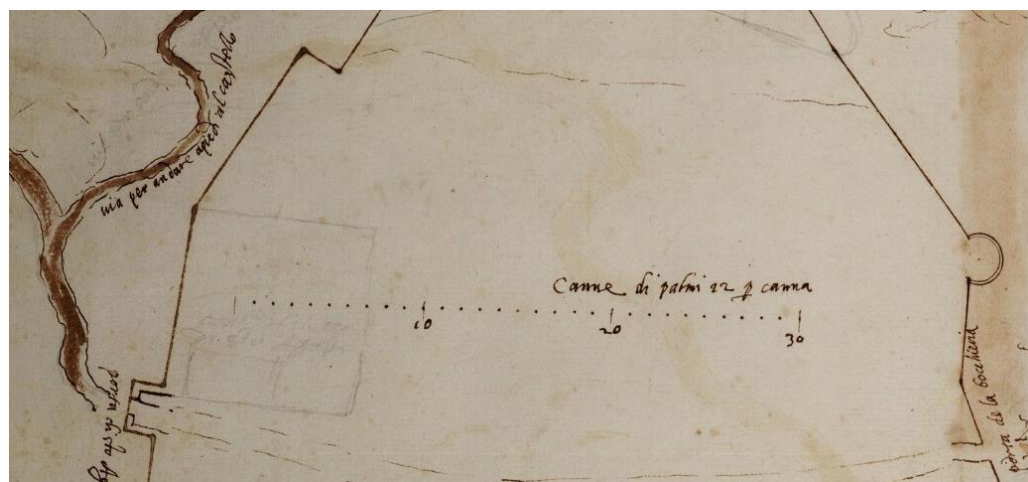 via per andare a pie del castello
Canne di palmi 12 p canna
10
20
30
porta di
porta de la